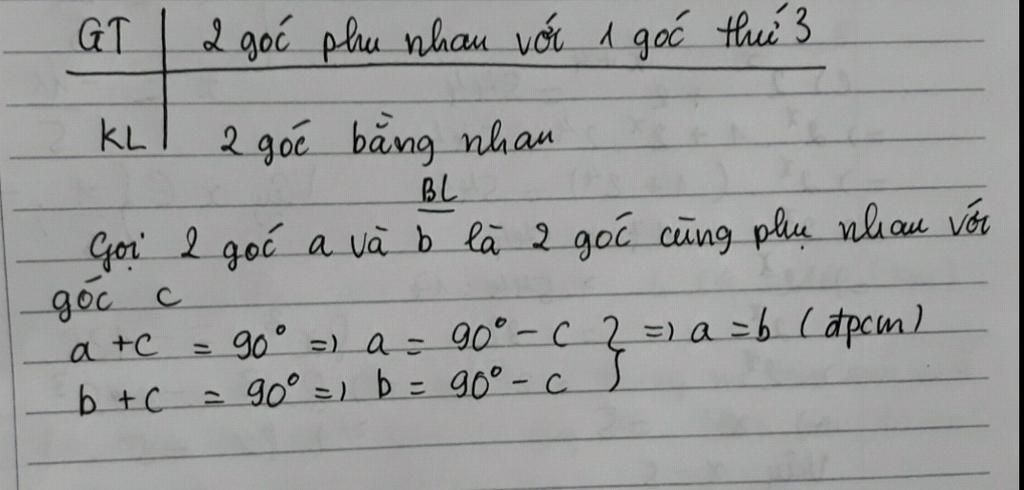 GT | 2 góc phu nhau với 1 góc thứ 3
KL | 2 góc bằng nhau
BL
Gọi 2 góc a và b là 2 góc cùng phụ nhau với
góc c
a + c = 90° => a = 90° - c } => a = b (đpcm)
b + c = 90° => b = 90° - c